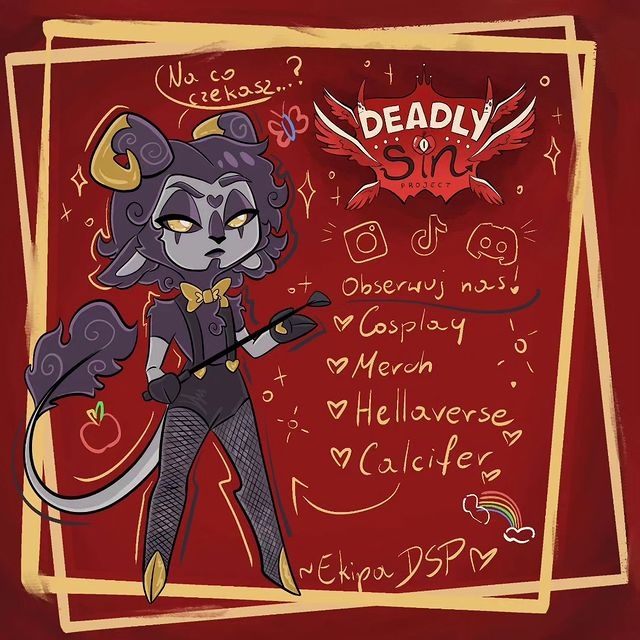 Na co
czekasz...?
DEADLY
Sin
PROJECT
Obserwuj nas!
Cosplay
Merch
Hellaverse
Calcifer
~Ekipa DSP